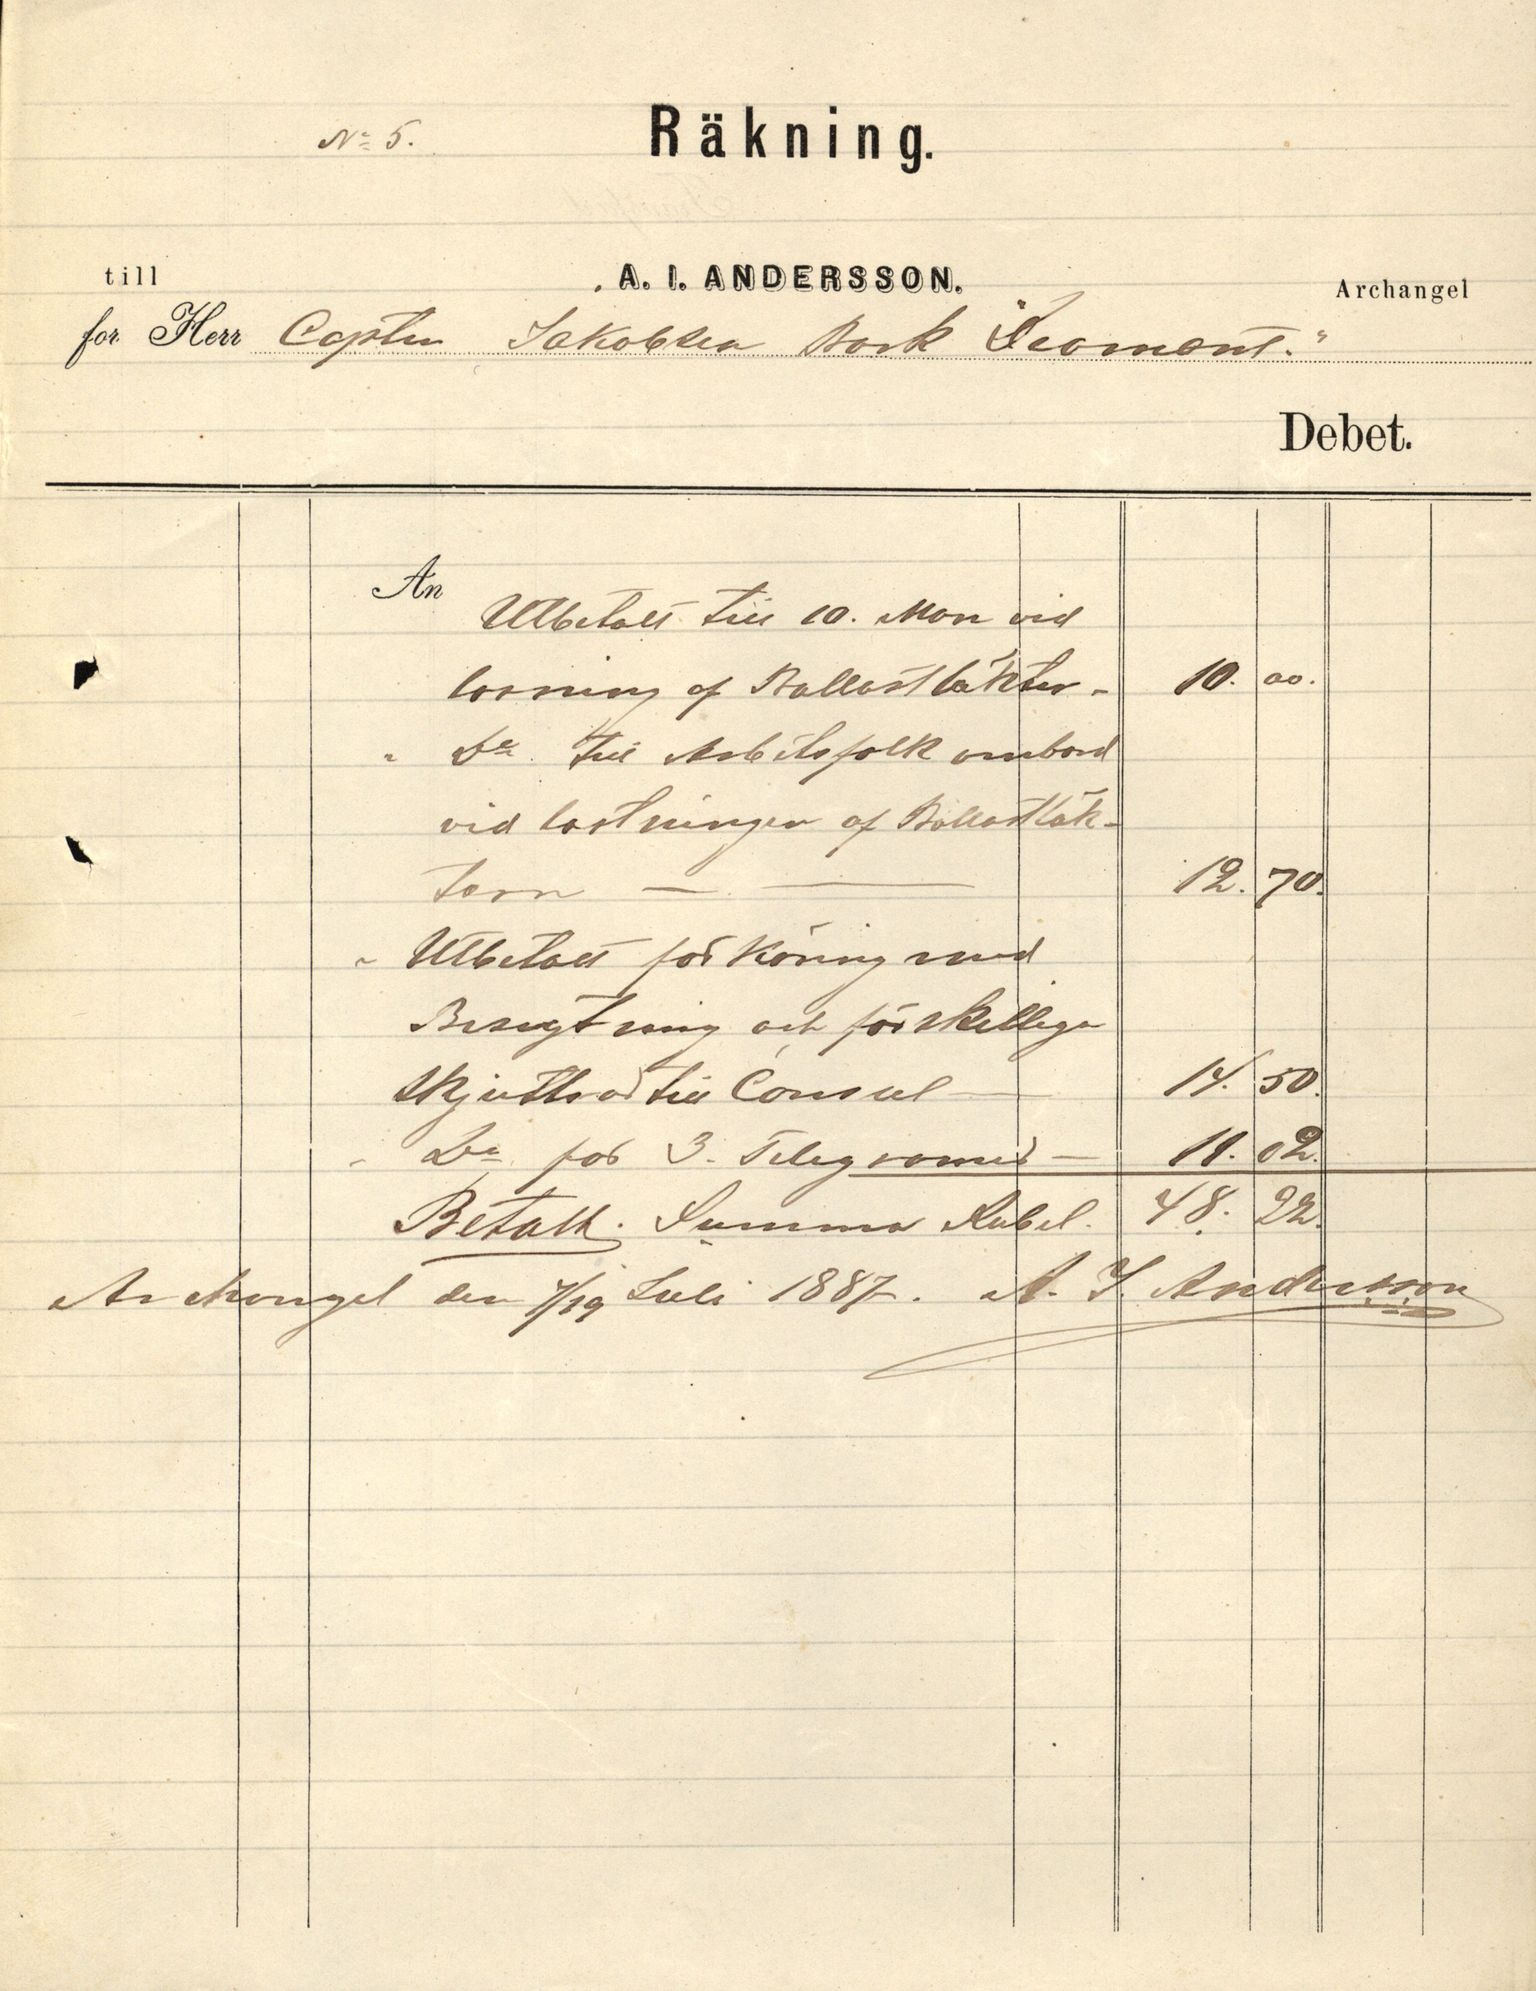 No 5.
Räkning.
till A. I. ANDERSSON. Archangel
for Herr Capten Jakobsen Bark "Fromont."
Debet.
An Utbetalt till 10. Man vid
lossning af Ballastläkter - 10. 00.
" Do till Arbetsfolk ombord
vid lastningen af Ballastläk-
tarn — — 12. 70.
" Utbetalt för Köring med
Besigtning och förskellige
Skjuttsar till Consul — 14. 50.
" Do för 3. Telegramer — 11. 02.
Betalt. Summa Rubel. 48. 22.
Archangel den 7/19 Juli 1887. A. I. Andersson